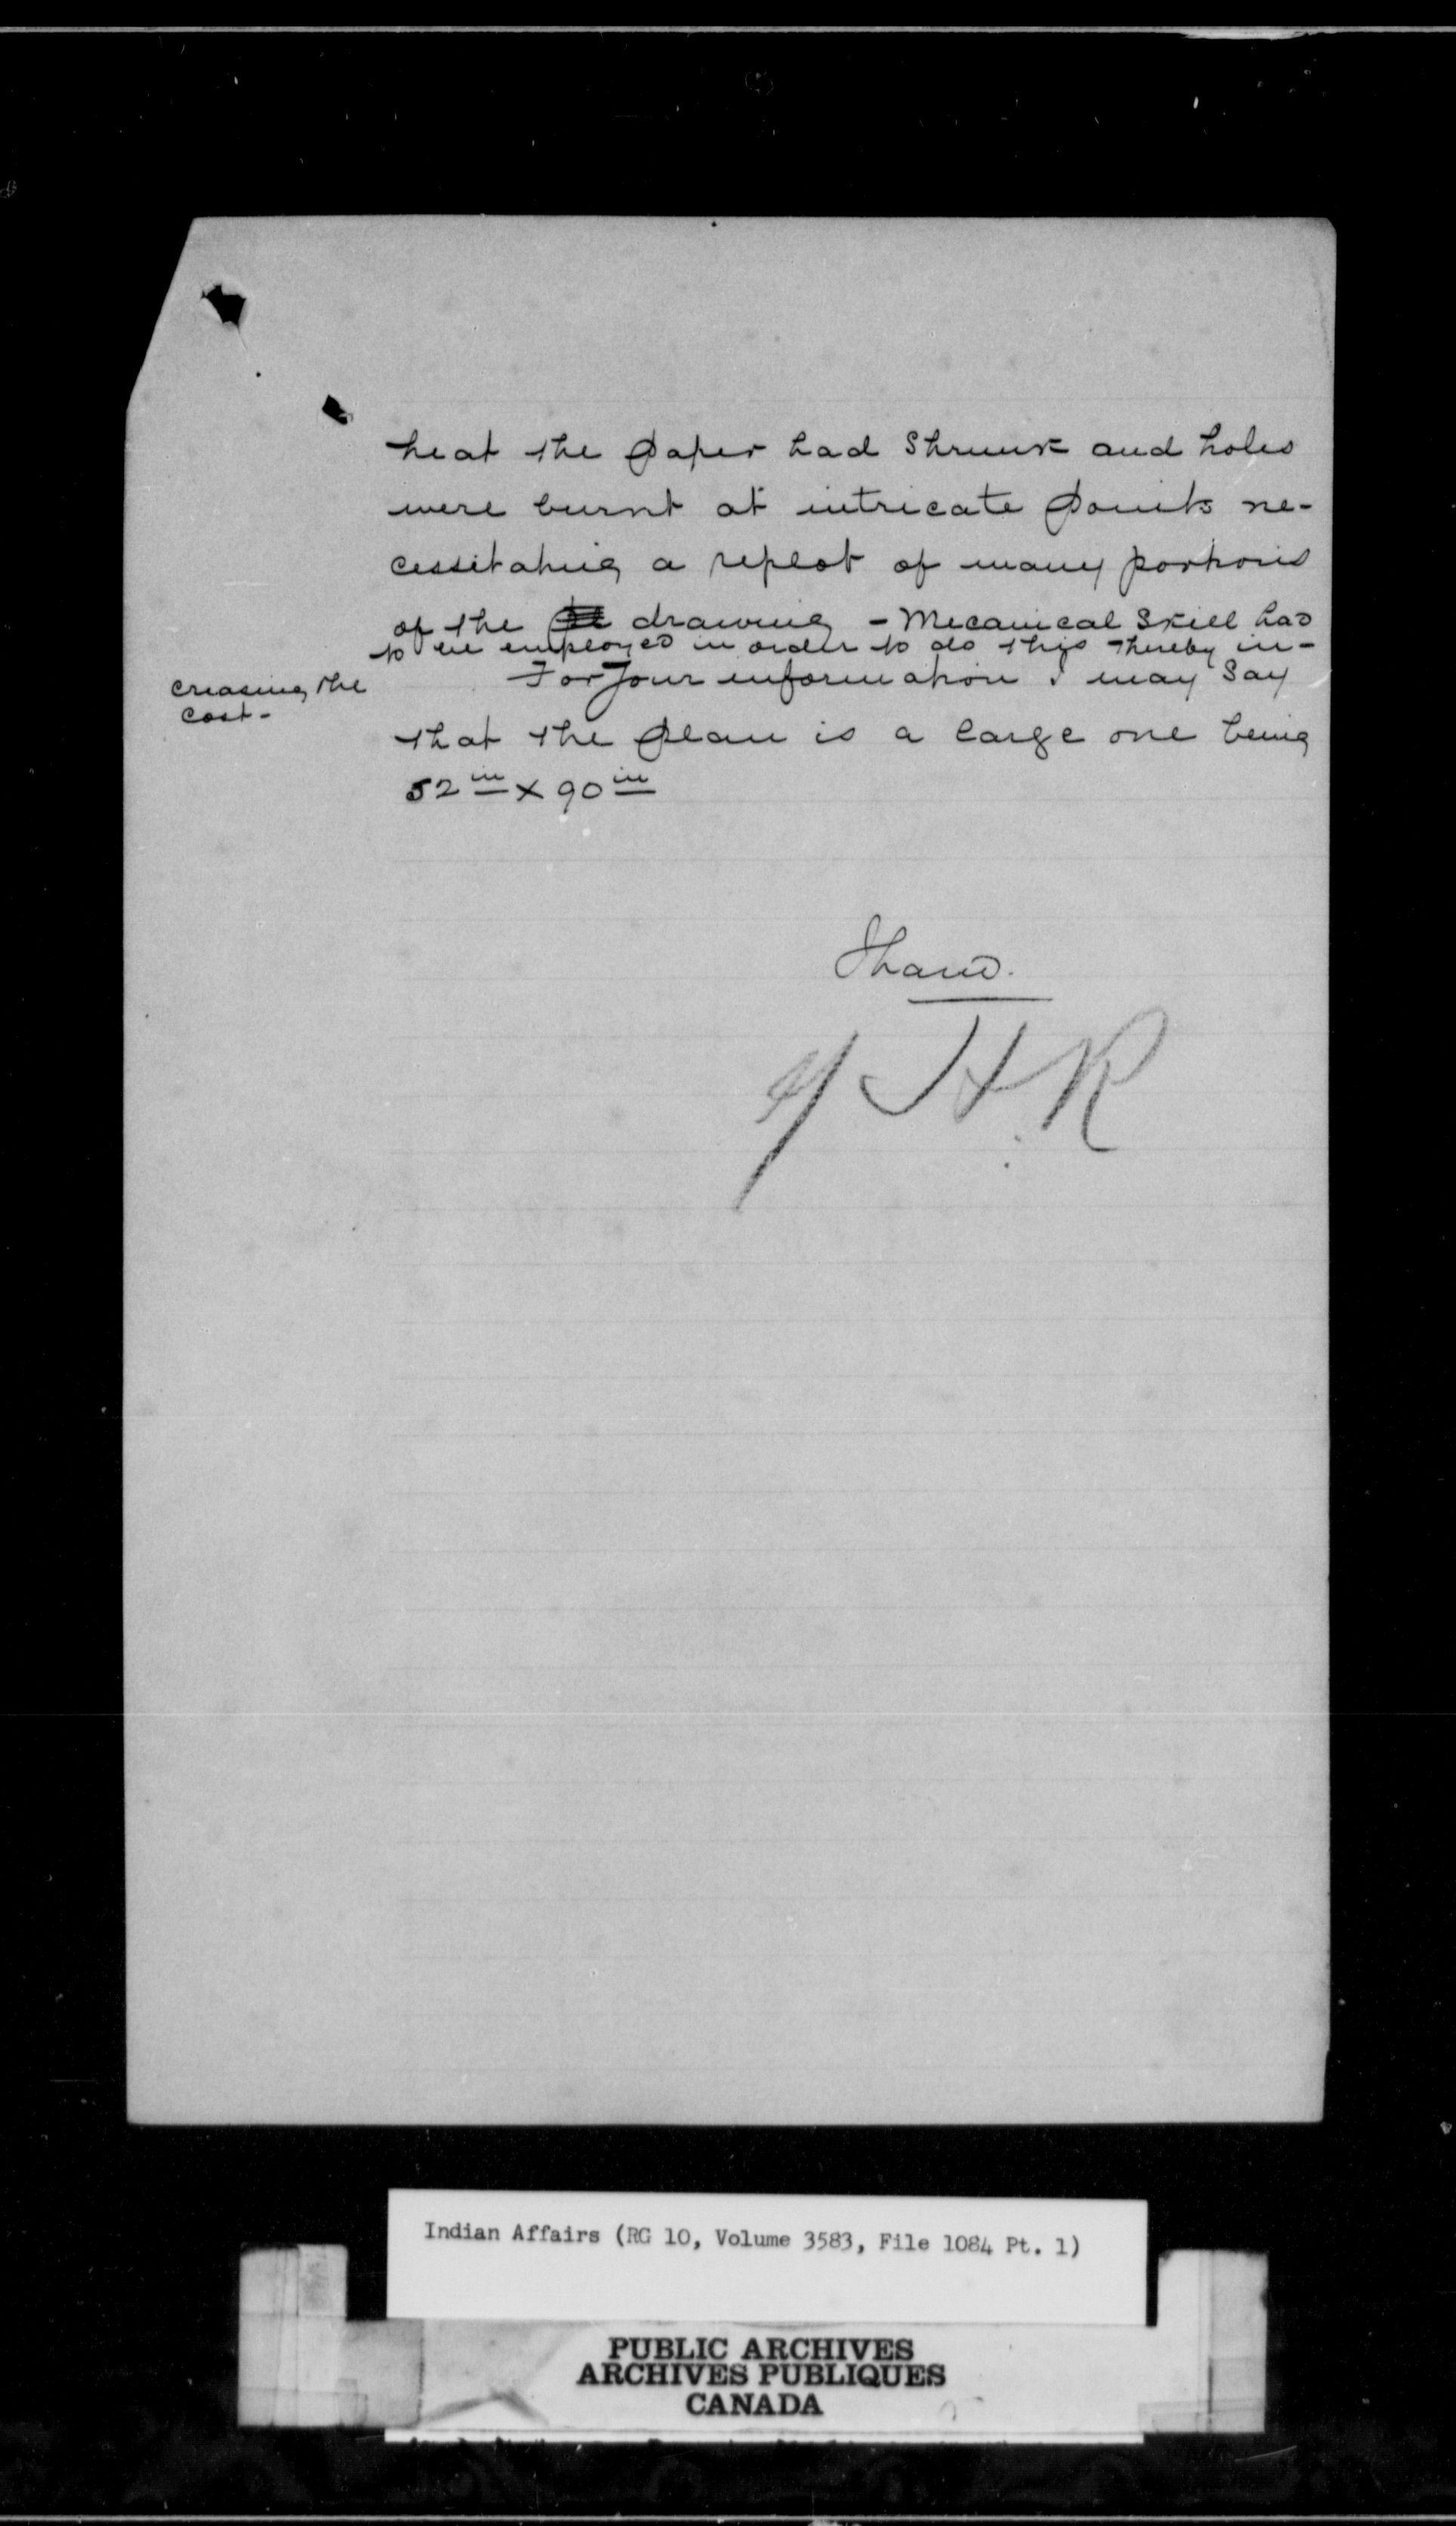 heat the paper had shrunk and holes
were burnt at intricate points ne-
cessitating a replot of many portions
of the drawing - Mecanical Skill had
to be employed in order to do this thereby in-
creasing the
cost -
For your information I may say
that the plan is a large one being
52 in x 90 in
H R
Indian Affairs (RG 10, Volume 3583, File 1084 Pt. 1)
PUBLIC ARCHIVES
ARCHIVES PUBLIQUES
CANADA